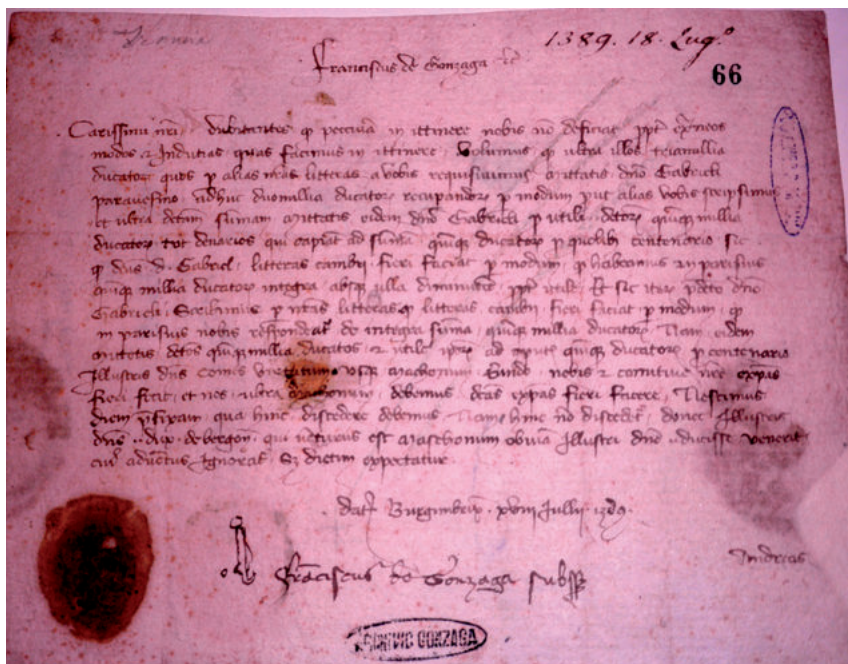 1389. 18. Lug.º
Franciscus de Gonzaga etc
66
Carissimi nri. dubitantes q peccunia in ittinere nobis nō deficiat ppt
modos et Indutias quas facimus in ittinere, Volumus q ultra illos triamillia
ducator quos p alias nras litteras a vobis requisivimus mittatis dno Gabrieli
adhuc duomillia ducator recuperandor p modum put alias vobis scripsimus
et ultra dctam sumam mittatis eidem dno Gabrieli p utili dctor quinq millia
ducator tot denarios qui capiāt ad suma quinq ducator p quolibet centenario sic
q dns d. Gabriel litteras cambij fieri faciat p modum q habeamus in parisius
quinq millia ducator integra absq ulla diminutione ppt utile. Et sic
Gabrieli Scribimus p nras litteras q litteras cambij fieri faciat p modum q
in parisius nobis respondeat de integra suma quinq millia ducator. Nam eidem
mittetis dctos quinq millia ducatos et utile ad quinq ducator p centenario
Illustris dns Comes Virtutum usq maschonum nobis et comitive nre expas
fieri fecit et nos ultra maschonum debemus dctas expas fieri facere. Nescimus
diem pfixam qua hinc discedere debemus Nam hinc nō discedet donec Illustris
dns dux de bergon qui venturus est maschonum obviā Illustri dne ducisse venerit
cui adventus Ignorat Sz dietim expectatur
dat Burgi xviii Jullii 1389
Andreas
Franciscus de Gonzaga subss
ARCHIVIO GONZAGA